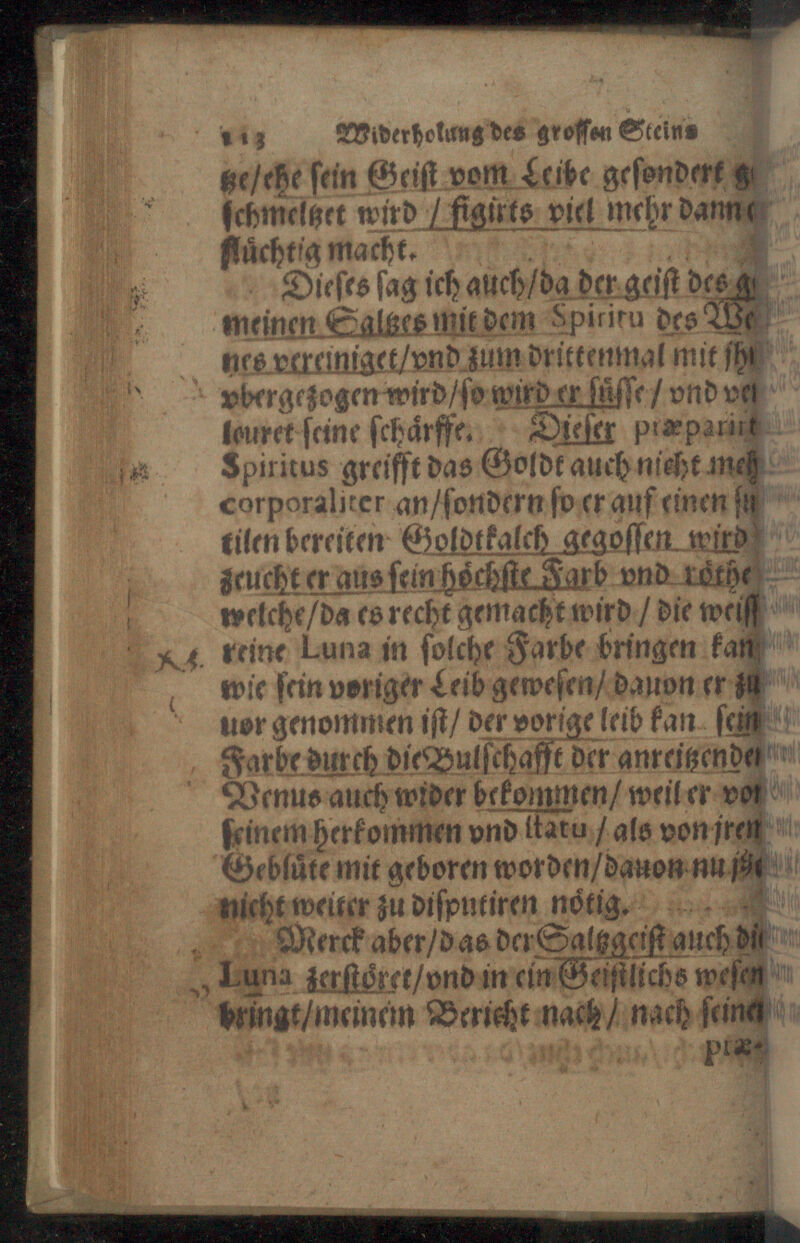 Widerholung des groſſen Steins
tze/ehe ſein Geiſt vom Leibe geſondert
ſchmeltzet wird / figirts viel mehr dann
fluͤchtig macht.
Dieſes ſag ich auch/da der geiſt des
meinen Saltzes mit dem Spiritu des
nes vereiniget/vnd zum drittenmal mit
vbergezogen wird/ſo wird er ſuͤſſe / vnd
louret ſeine ſchaͤrffe. Dieſer præparirt
Spiritus greifft das Goldt auch nicht
corporaliter an/ſondern ſo er auf einen
tilen bereiten Goldtkalch gegoſſen wird
zeucht er aus ſein hoͤchſte Farb vnd roͤthe
welche/da es recht gemacht wird / die weiſſ
reine Luna in ſolche Farbe bringen kan
wie ſein voriger Leib geweſen/ dauon er zu
uor genommen iſt/ der vorige leib kan ſein
Farbe durch die Bulſchafft der anreitzenden
Venus auch wider bekommen/ weil er von
ſeinem herkommen vnd ſtatu / als von jren
Gebluͤte mit geboren worden/dauon nu
nicht weiter zu diſputiren noͤtig.
Merck aber/das der Saltzgeiſt auch di
Luna zerſtoͤret/vnd in ein Geiſtlichs weſen
bringt/meinem Bericht nach / nach ſeine
præ-